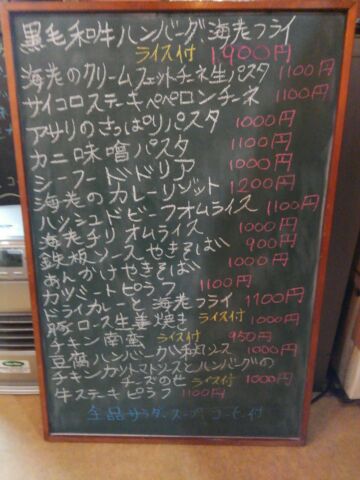 黒毛和牛ハンバーグ海老フライ
ライス付 1,900円
海老のクリームフェットチーネ生パスタ 1100円
サイコロステーキペペロンチーネ 1100円
アサリのさっぱりパスタ 1000円
カニ味噌パスタ 1100円
シーフードドリア 1000円
海老のカレーリゾット 1200円
ハッシュドビーフオムライス 1100円
海老チリオムライス 1000円
鉄板ソースやきそば 900円
あんかけやきそば 1000円
カツハートピラフ 1100円
ドライカレーと海老フライ 1100円
豚ロース生姜焼き ライス付 1000円
チキン南蛮 ライス付 950円
豆腐ハンバーグ ソース 1000円
チキンカットマトソースとハンバーグの
チーズのせ ライス付 1000円
牛ステーキピラフ 1100円
全品サラダ・スープ コーヒー付